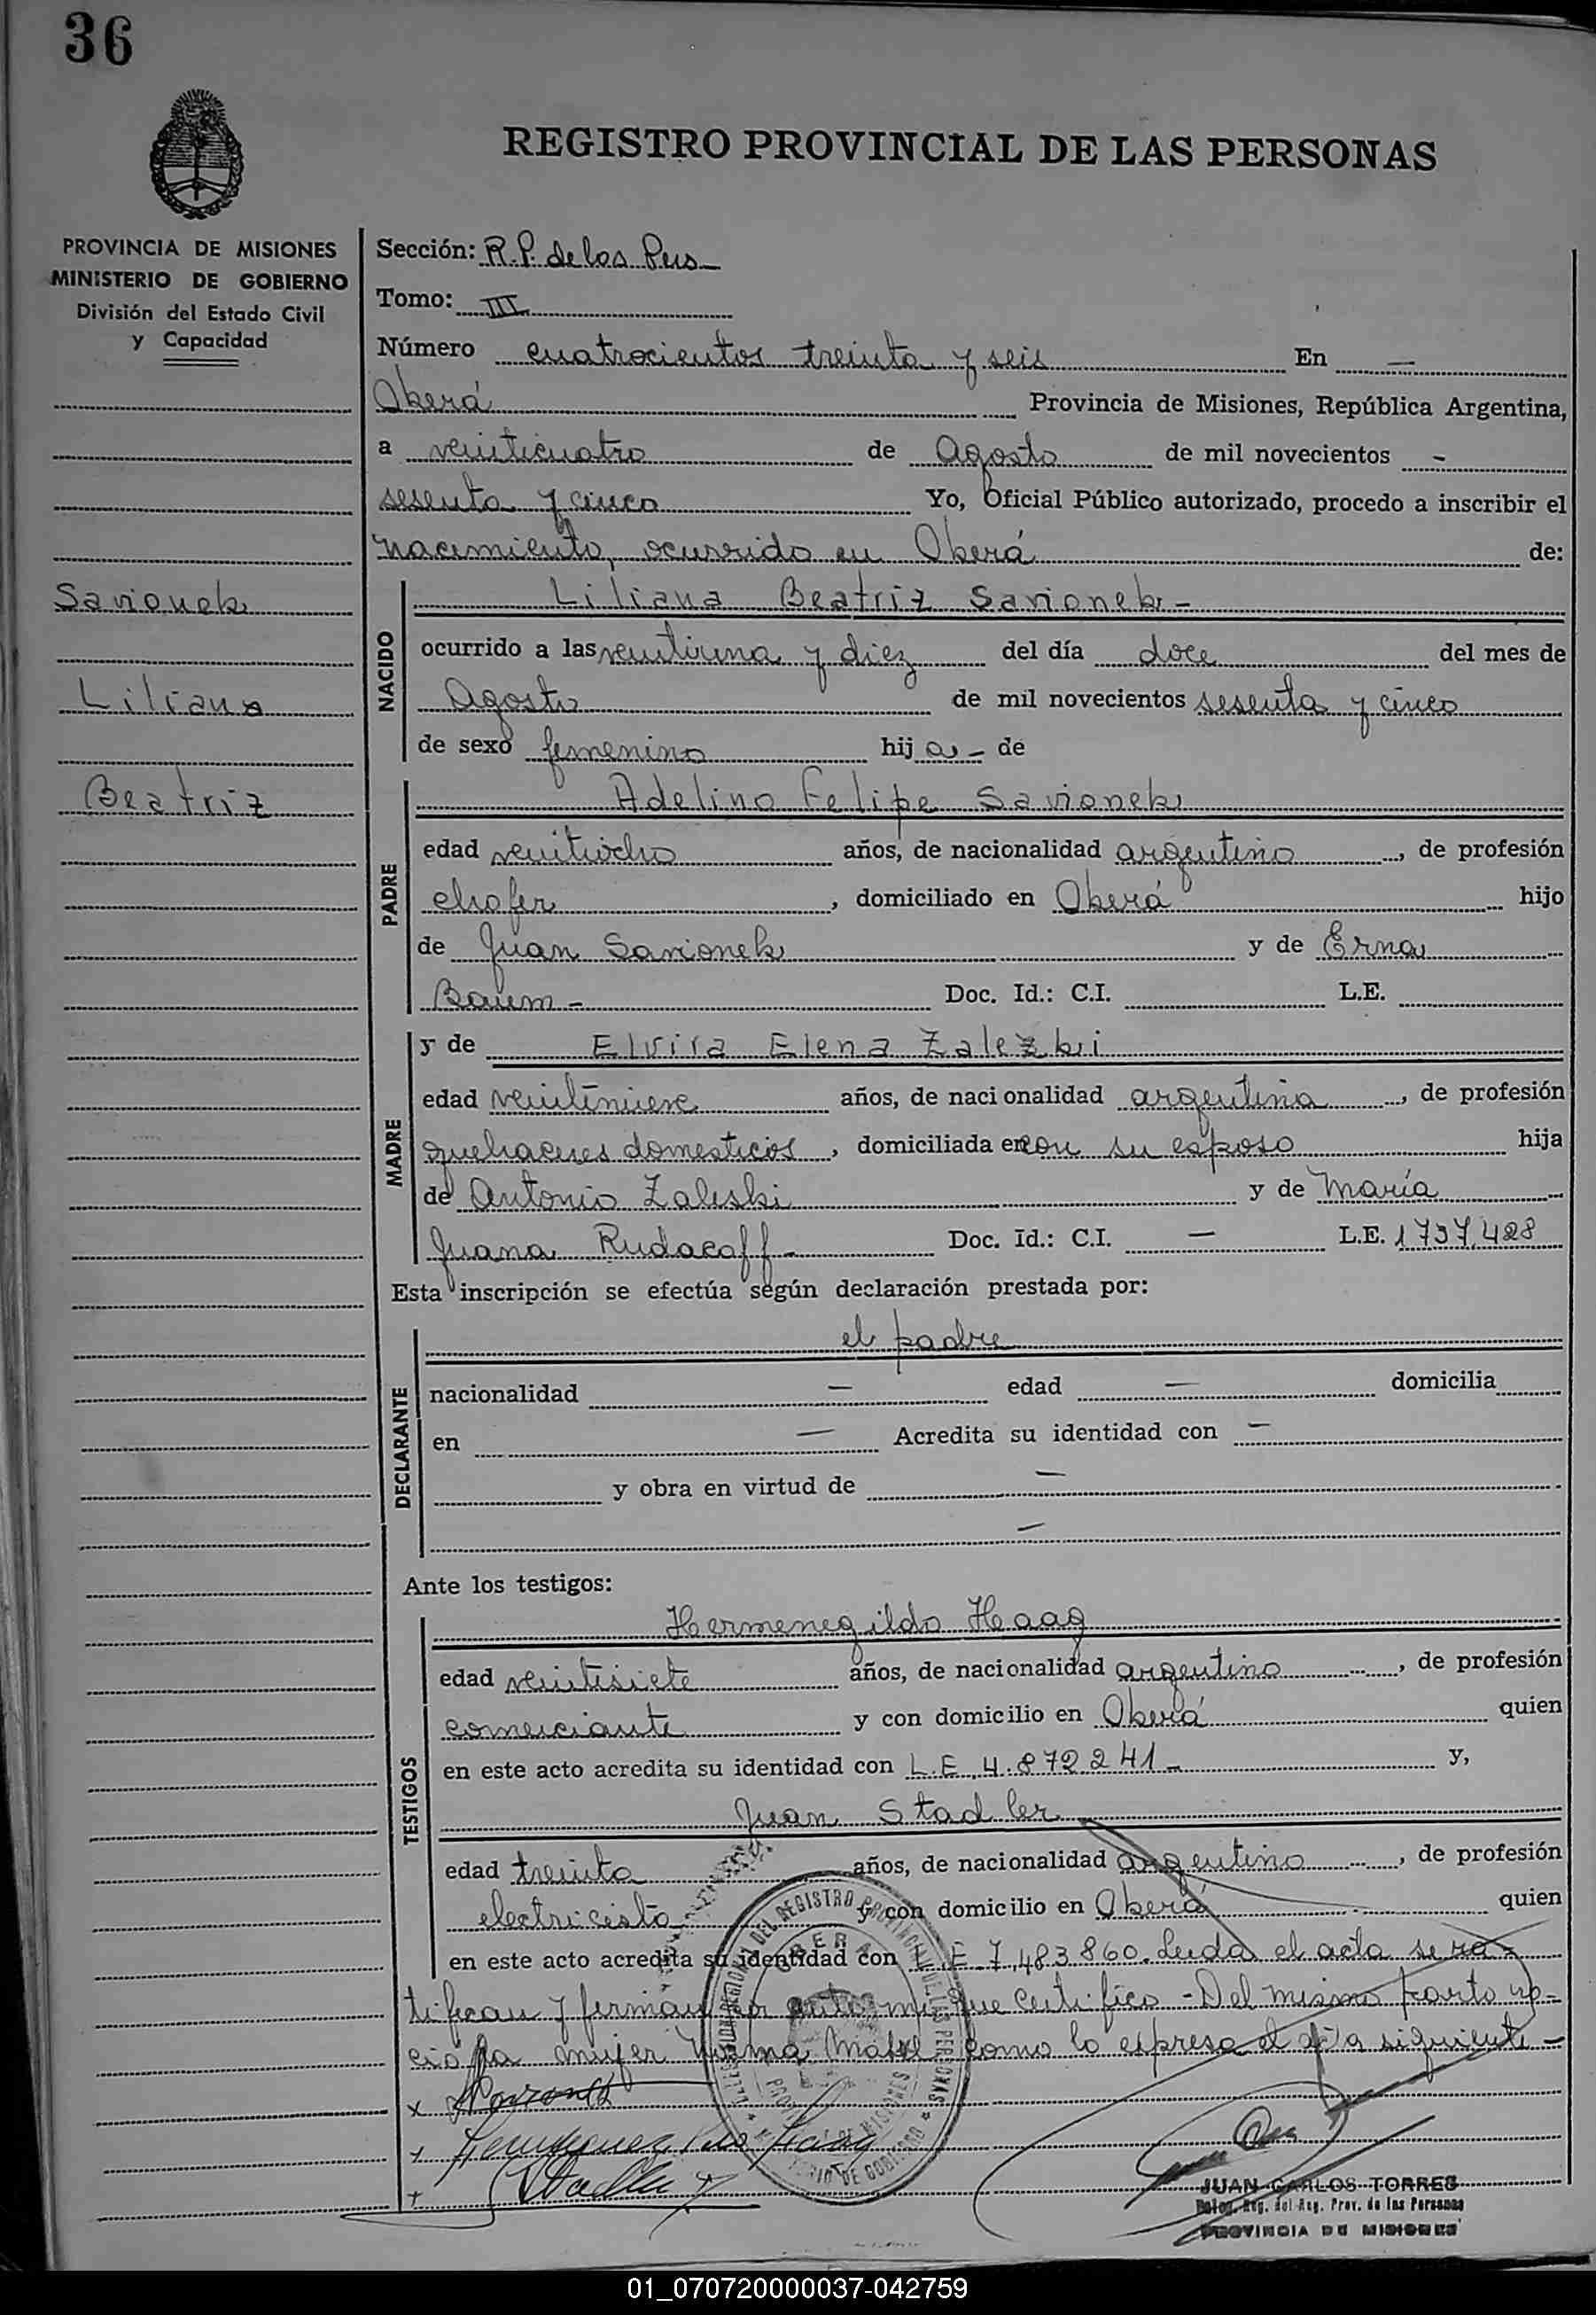 36
REGISTRO PROVINCIAL DE LAS PERSONAS
PROVINCIA DE MISIONES
MINISTERIO DE GOBIERNO
División del Estado Civil
y Capacidad
Savionek
Liliana
Beatriz
Sección: R.P. de las Pers
Tomo: III
Número cuatrocientos treinta y seis En —
Oberá Provincia de Misiones, República Argentina,
a veinticuatro de Agosto de mil novecientos -
sesenta y cinco Yo, Oficial Público autorizado, procedo a inscribir el
nacimiento, ocurrido en Oberá de:
NACIDO
Liliana Beatriz Savionek -
ocurrido a las veintiuna y diez del día doce del mes de
Agosto de mil novecientos sesenta y cinco
de sexo femenino hija - de
PADRE
Adelino Felipe Savionek
edad veintiocho años, de nacionalidad argentino, de profesión
chofer, domiciliado en Oberá hijo
de Juan Savionek y de Erna
Baum - Doc. Id.: C.I. L.E.
MADRE
y de Elvira Elena Zalezki
edad veintinueve años, de nacionalidad argentina, de profesión
quehaceres domesticos, domiciliada en con su esposo hija
de Antonio Zaleski y de María
Juana Rudacoff - Doc. Id.: C.I. — L.E. 1737,428
Esta inscripción se efectúa según declaración prestada por:
DECLARANTE
el padre
nacionalidad — edad — domicilia
en — Acredita su identidad con —
y obra en virtud de —
—
Ante los testigos:
TESTIGOS
Hermenegildo Haag
edad veintisiete años, de nacionalidad argentino, de profesión
comerciante y con domicilio en Oberá quien
en este acto acredita su identidad con L.E. 4.872241 - y,
Juan Stadler
edad treinta años, de nacionalidad argentino, de profesión
electricista y con domicilio en Oberá quien
en este acto acredita su identidad con L.E. 7,483860. Leida el acta se ra-
tifican y firman por ante mi que certifico - Del mismo parto na-
ció la mujer Norma Mabel como lo expresa el acta siguiente -
JUAN CARLOS TORRES
Deleg. Reg. del Reg. Prov. de las Personas
PROVINCIA DE MISIONES
01_070720000037-042759